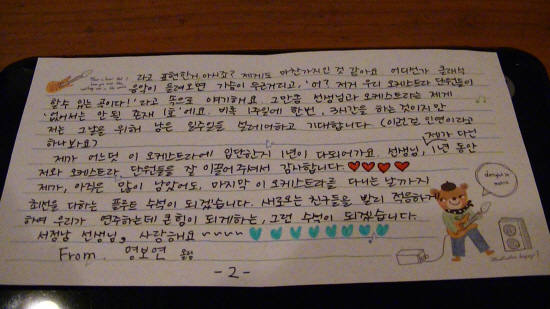 라고 표현한거 아시죠? 제게도 마찬가지인 것 같아요. 어디선가 클래식
음악이 들려오면 가슴이 두근거리고, '어? 저거 우리 오케스트라 단원들이
할수 있는 곡이다!' 라고 속으로 얘기해요. 그만큼 선생님과 오케스트라는 제게
'없어서는 안 될 존재 1호'에요. 비록 1주일에 한번, 3시간을 하는 것이지만
저는 그날을 위해 남은 일주일을 설레여하고 기대합니다 (이런걸 인연이라고
하나봐요?)
제가 다선
제가 어느덧 이 오케스트라에 입단한지 1년이 다되어가요. 선생님, 1년 동안
저와 오케스트라, 단원들을 잘 이끌어주셔서 감사합니다
제가, 아직은 많이 남았어도, 마지막 이 오케스트라를 다니는 날까지
최선을 다하는 플루트 수석이 되겠습니다. 새로오는 친구들을 빨리 적응하게
하여 우리가 연주하는데 큰힘이 되게하는, 그런 수석이 되겠습니다.
서정남 선생님, 사랑해요~~~~
From. 명보연 올림
-2-